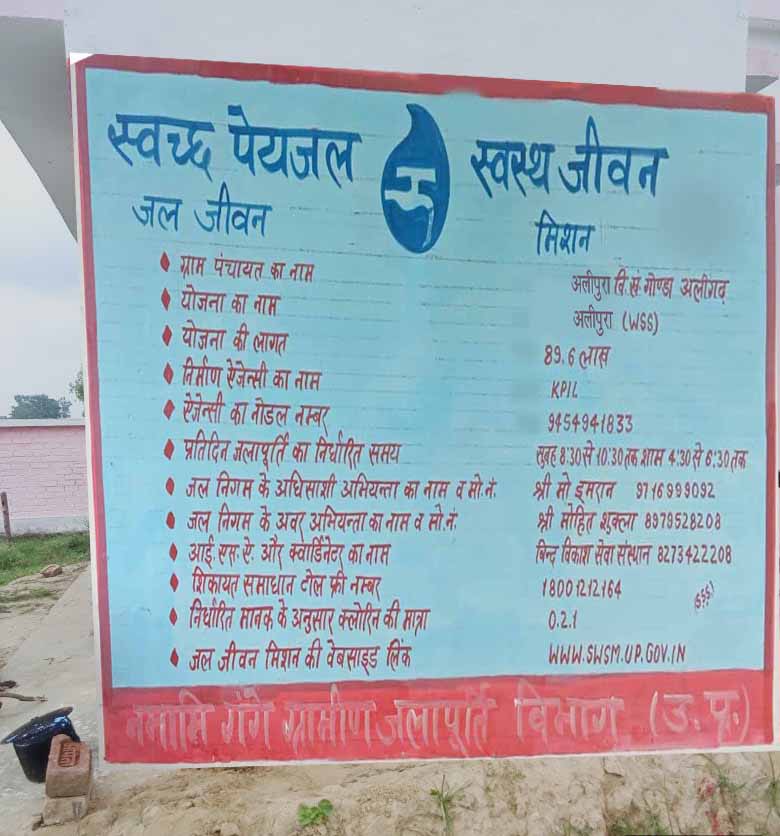 स्वच्छ पेयजल स्वस्थ जीवन
जल जीवन मिशन
ग्राम पंचायत का नाम अलीपुरा वि.खं गोण्डा अलीगढ़
योजना का नाम अलीपुरा (WSS)
योजना की लागत 89.6 लाख
निर्माण ऐजेन्सी का नाम KPIL
ऐजेन्सी का नोडल नम्बर 9454941833
प्रतिदिन जलापूर्ति का निर्धारित समय सुबह 8:30 से 10:30 तक शाम 4:30 से 6:30 तक
जल निगम के अधिसाशी अभियन्ता का नाम व मो.नं. श्री मो इमरान 9716999092
जल निगम के अवर अभियन्ता का नाम व मो.नं. श्री मोहित शुक्ला 8979528208
आई एस ऐ और क्वार्डिनेटर का नाम विन्द विकाश सेवा संस्थान 8273422208
शिकायत समाधान टोल फ्री नम्बर 18001212164
निर्धारित मानक के अनुसार क्लोरिन की मात्रा 0.2.1
जल जीवन मिशन की वेबसाइड लिंक WWW.SWSM.UP.GOV.IN
नमामि गंगे ग्रामीण जलापूर्ति विभाग (उ.प्र.)